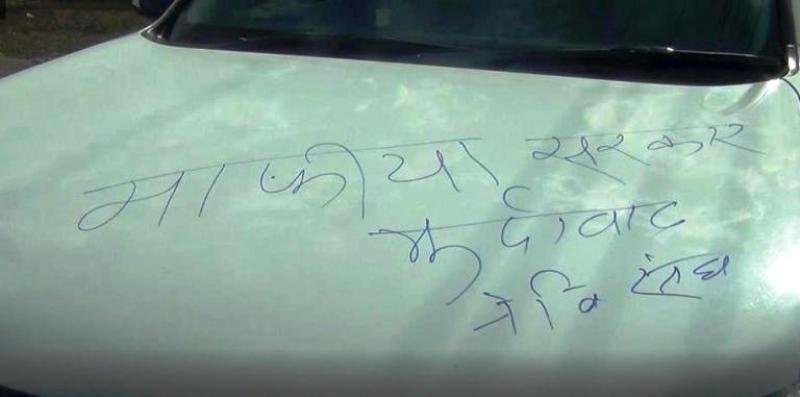 माफीया सरकार
मुर्दावाद
ने।वि संघ